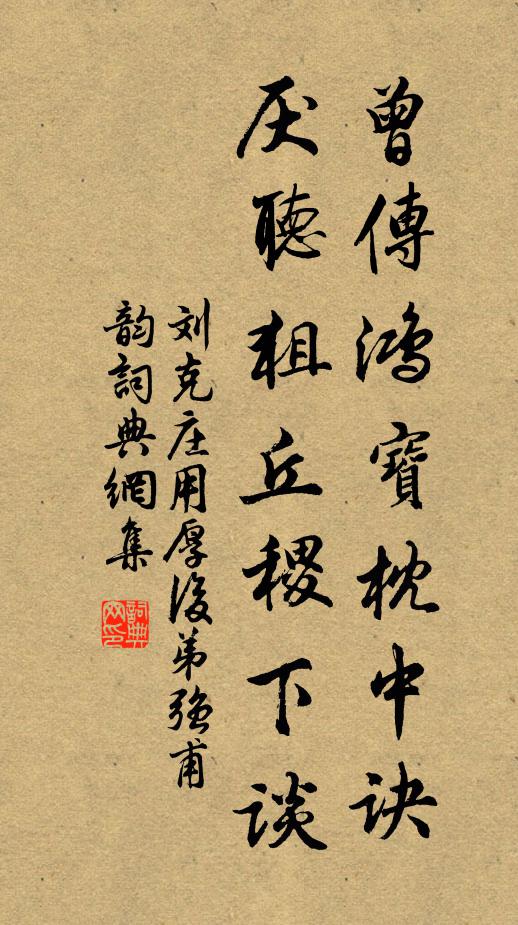 曾傳鴻寶枕中诀
厌聽狙丘稷下谈
刘克庄用厚後弟强甫
韵詞典網集
詞典网印